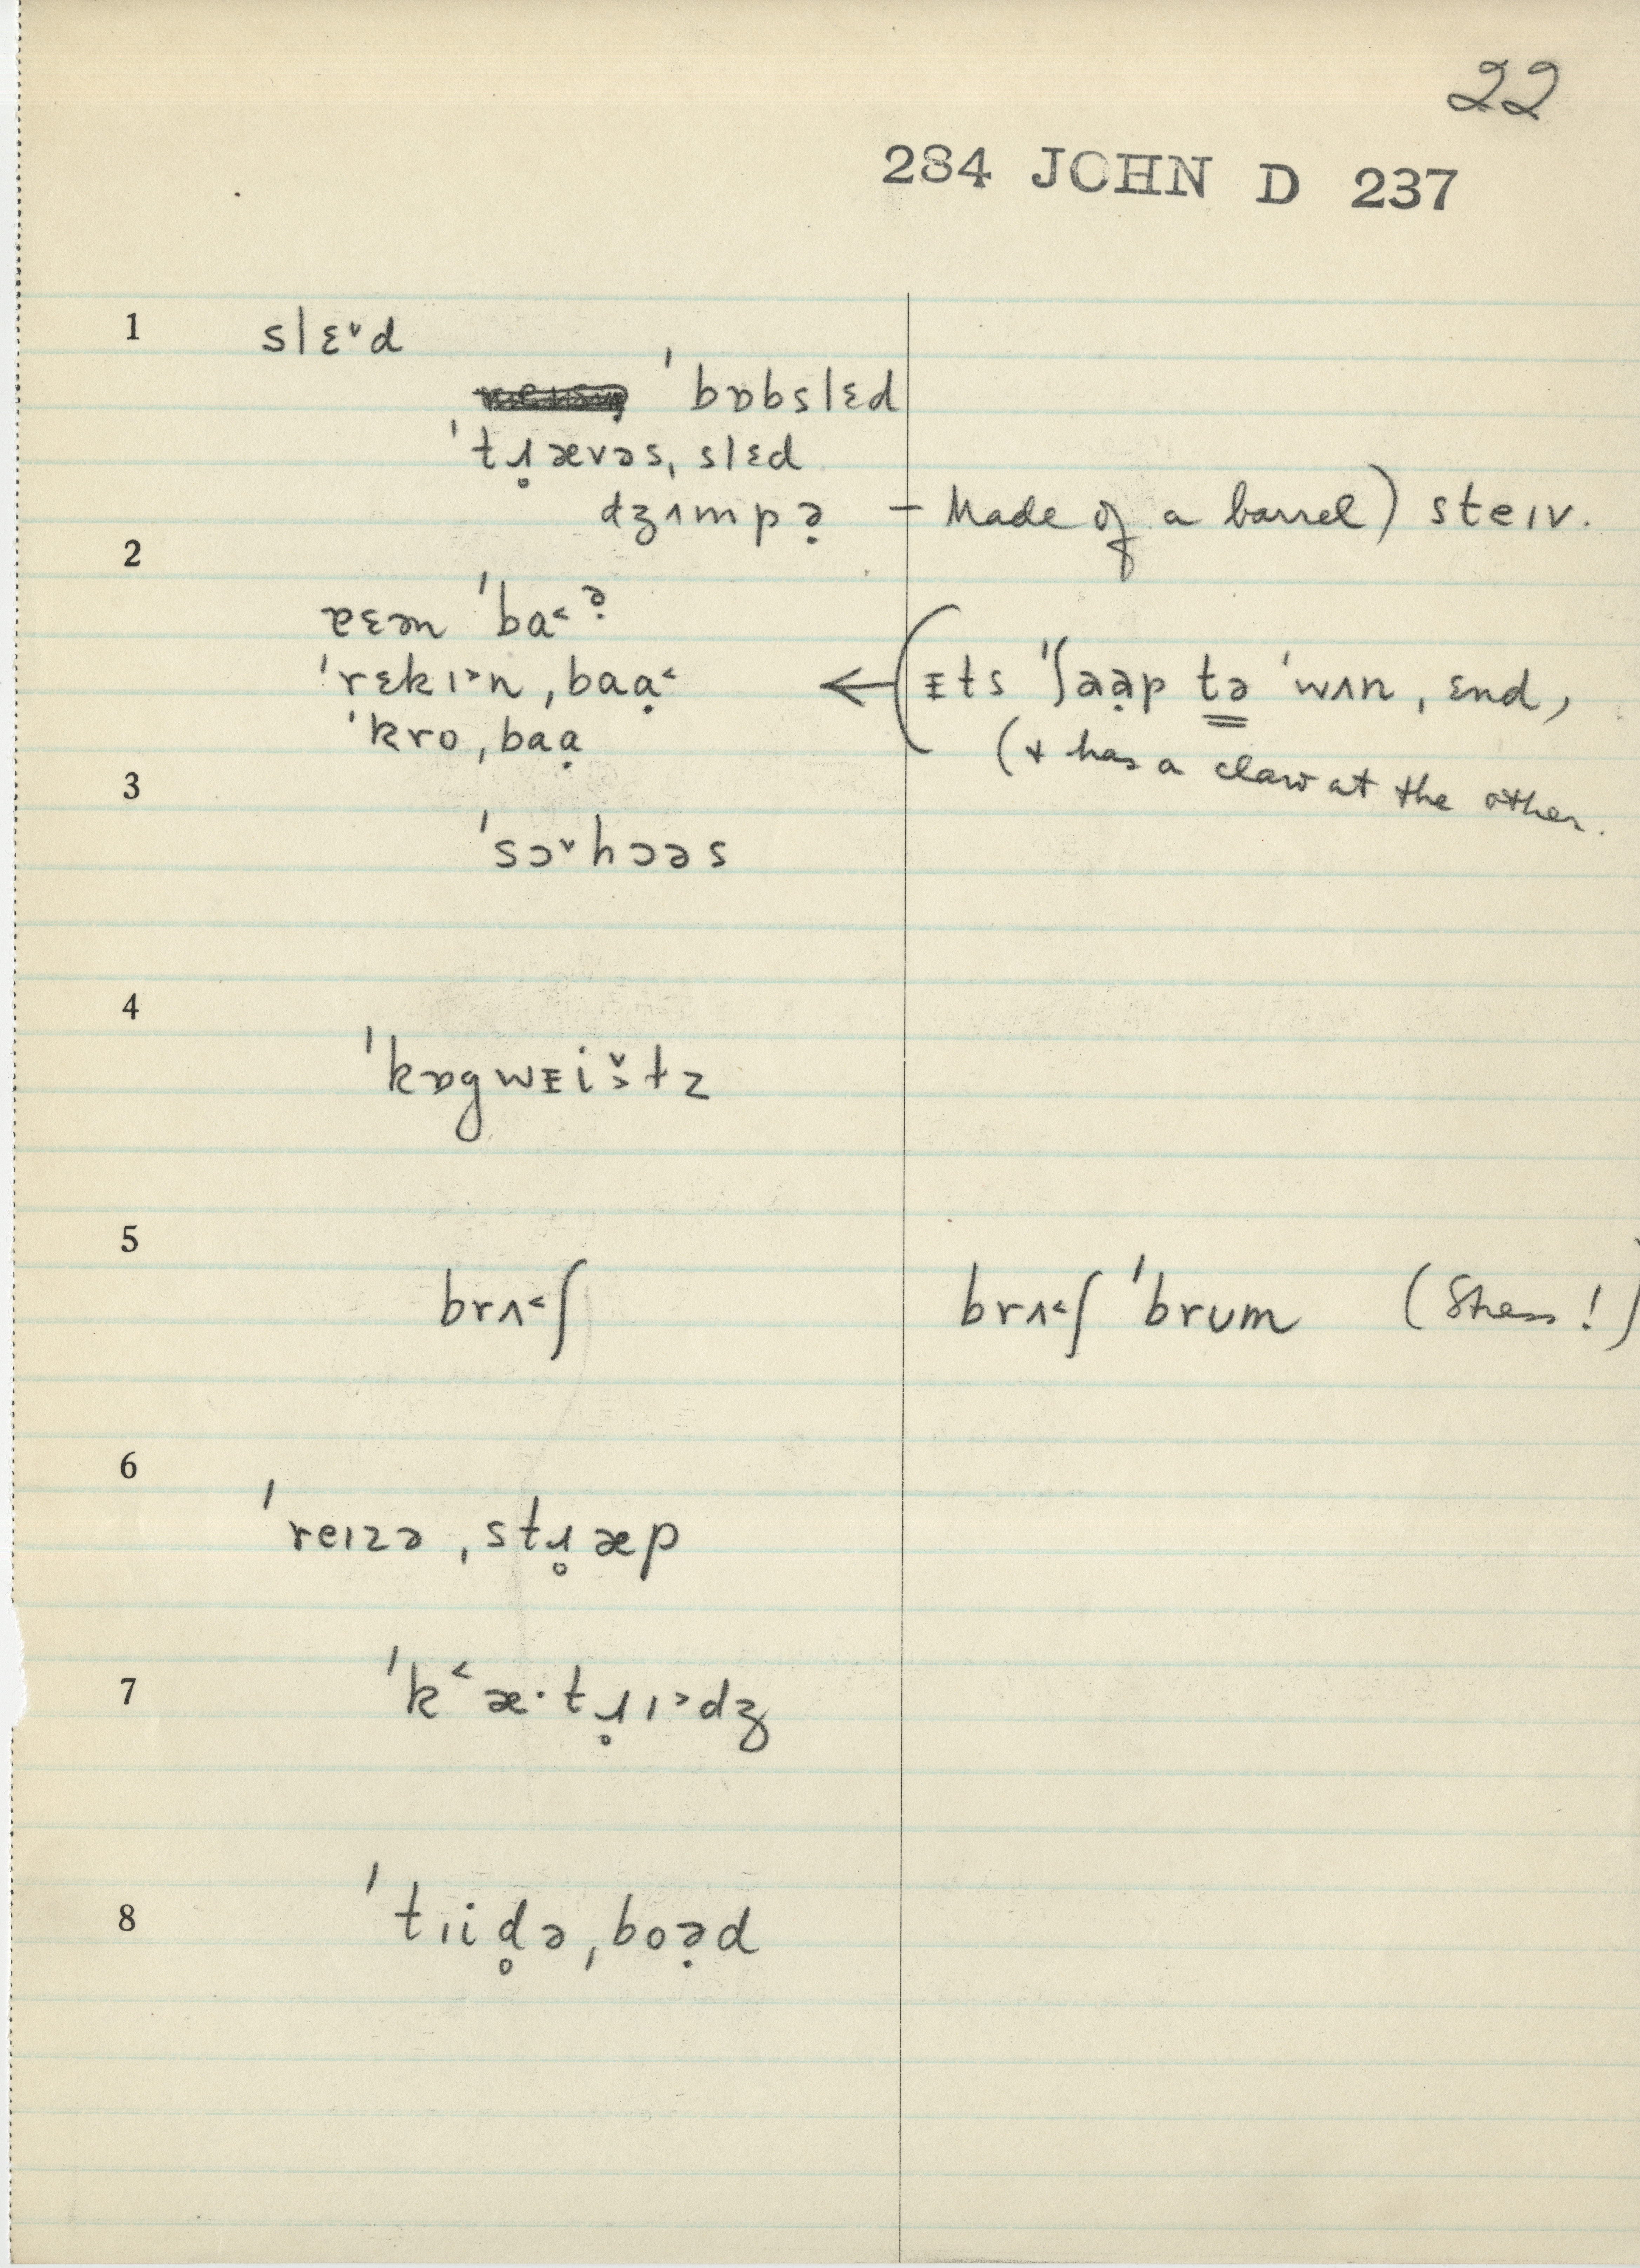 22
284 JOHN D 237
1 slɛ˅d
ˈbɒbslɛd
ˈtɹ̥ævəsˌslɛd
dʒʌmpə̣ – Made of a barrel) steɪv.
2
ɐɛən ˈba˂ə̣
ˈrɛkɪ˃nˌbaạ˂ ← (ᵻts ˈʃaə̣p tə ˈwʌnˌɛnd,
ˈkroˌbaạ (+ has a claw at the other.
3
ˈsɔ˅hɔəs
4
ˈkɒgwᵻi˃̌tz
5
brʌ˂ʃ brʌ˂ʃ ˈbrʊm (Stress!)
6
ˈreɪzəˌstɹ̥æp
7
ˈk˂æ·tɹ̥ɪ˃dʒ
8
ˈtɪid̥əˌboə̣d